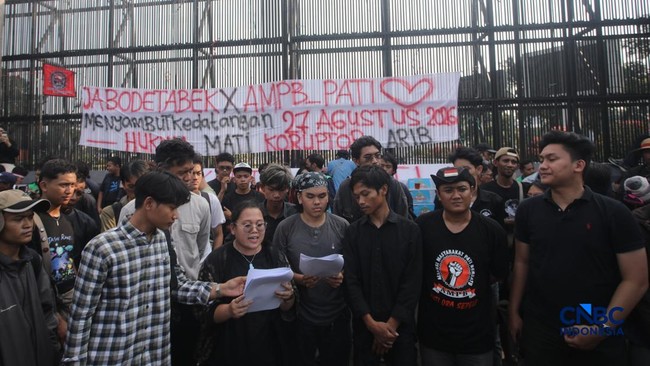 JABODETABEK X AMPB_PATI
MENYAMBUT KEDATANGAN 27 AGUSTUS 2025
— HUKUM MATI KORUPTOR ARIB
MASYARAKAT PATI
AMPB
CNBC
INDONESIA